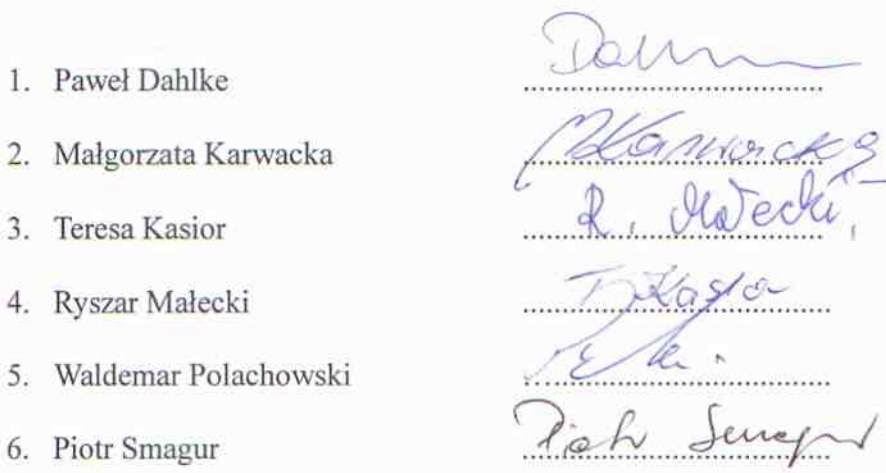 1. Paweł Dahlke
2. Małgorzata Karwacka MKarwacka
3. Teresa Kasior R. Małecki
4. Ryszar Małecki T Kasior
5. Waldemar Polachowski
6. Piotr Smagur Piotr Smagur